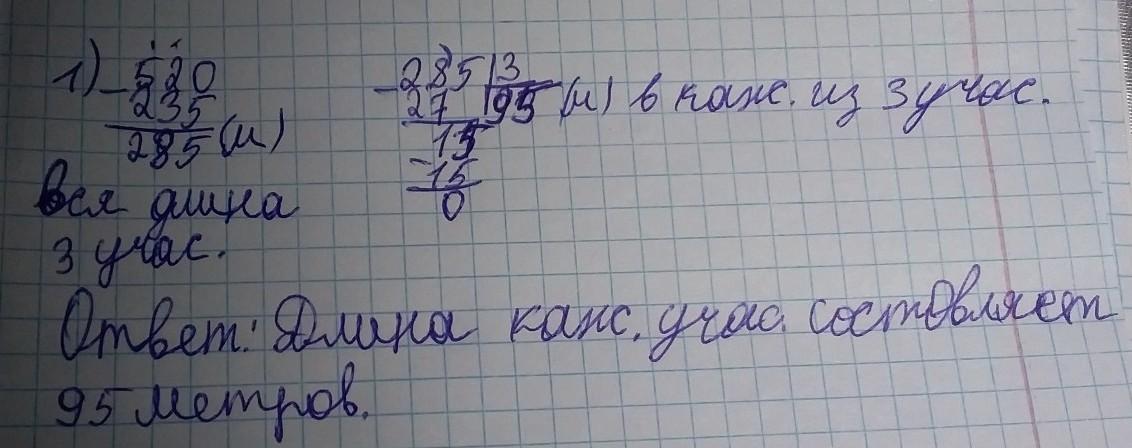 1) -520 -285 | 3
235 27 | 95 (м) в кажс. из 3 учас.
285 (м) 15
-15
Вся длина 0
3 учас.
Ответ: Длина кажс. учас. состовляет
95 метров.